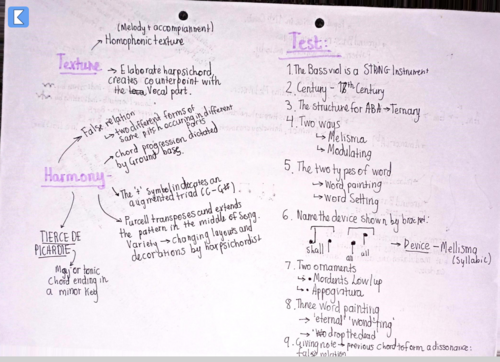 (Melody + accompaniment)
Homophonic texture
Texture
→ Elaborate harpsichord
creates counterpoint with
the Vocal part.
False relation
↳ two different forms of
same pitch occurring in different
parts
↳ Chord progression dictated
by Ground bass.
Harmony
↳ The '+' symbol indicates an
augmented triad
↳ Purcell transposes and extends
the pattern in the middle of song.
Variety → changing layouts and
decorations by harpsichordist
TIERCE DE
PICARDIE
Major tonic
chord ending in
a minor key
Test:
1. The Bass viol is a STRING Instrument
2. Century - 18th Century
3. The structure for ABA → Ternary
4. Two ways
↳ Melisma
↳ Modulating
5. The two types of word
↳ Word painting
↳ Word Setting
6. Name the device shown by bracket:
shall all all
→ Device - Mellisma
(Syllabic)
7. Two ornaments
↳ • Mordents Low/up
↳ • Appogiatura
8. Three word painting
→ 'eternal' 'wond'ring'
→ 'drop the dead'
9. Giving note → previous chord to form a dissonance:
false relation